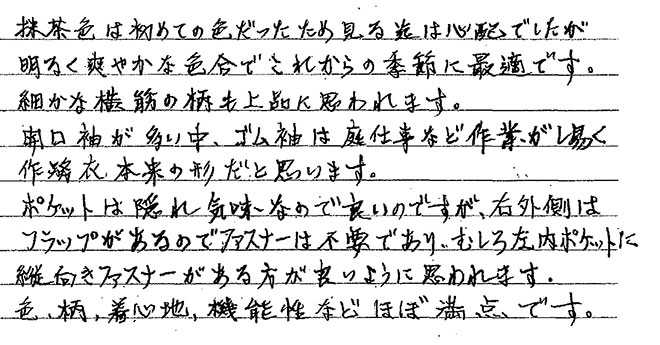 抹茶色は初めての色だったため見る迄は心配でしたが
明るく爽やかな色合でこれからの季節に最適です。
細かな横筋の柄も上品に思われます。
開口袖が多い中、ゴム袖は庭仕事など作業がし易く
作務衣本来の形だと思います。
ポケットは隠れ気味なので良いのですが、右外側は
フラップがあるのでファスナーは不要であり、むしろ左内ポケットに
縦向きファスナーがある方が良いように思われます.
色、柄、着心地、機能性などほぼ満点、です。